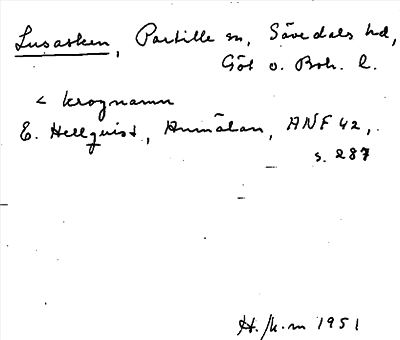 Lusasken, Partille sn, Sävedals hd,
Göt o. Boh. l.
< krognamn
E. Hellquist, Anmälan, ANF 42,
s. 287
H. /k.m 1951